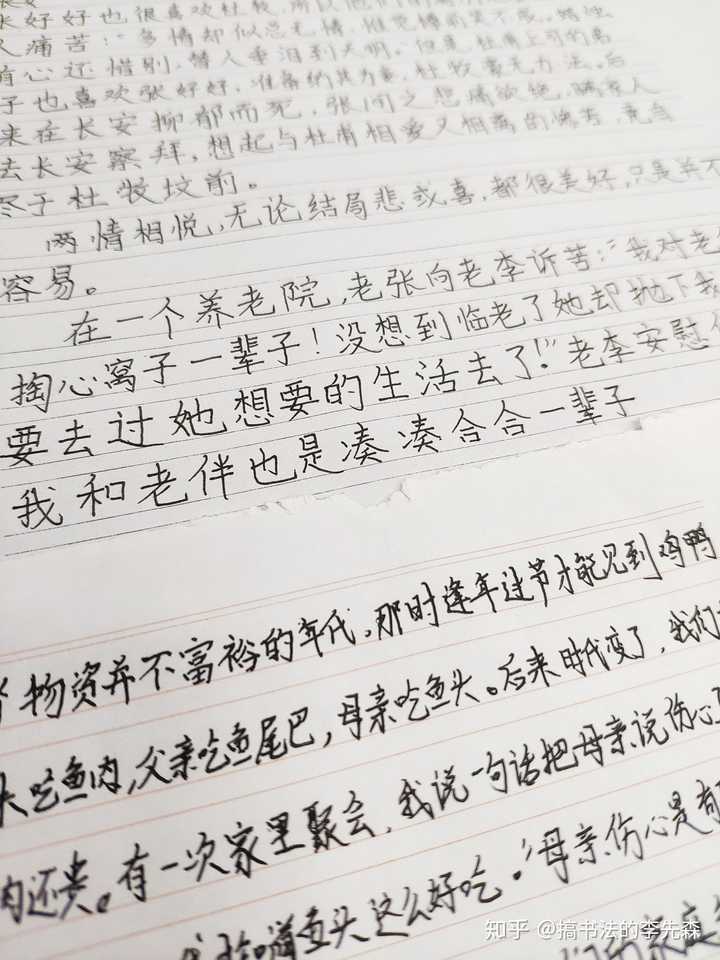 张好好也很喜欢杜牧,所以他们的
久痛苦:“多情却似总无情,唯觉樽前笑不成。蜡烛
有心还惜别,替人垂泪到天明。但是杜甫上司的
子也喜欢张好好,准备纳其为妻,杜牧毫无办法。后
来在长安抑郁而死,张闻之悲痛欲绝,瞒家人
去长安察拜,想起与杜甫相爱又相离的惨考,竟自
尽于杜牧坟前。
两情相悦,无论结局悲或喜,都很美好,只是并不
容易。
在一个养老院,老张向老李诉苦:“我对老
掏心窝子一辈子!没想到临老了她却抛下我
要去过她想要的生活去了!”老李安慰
我和老伴也是凑凑合合一辈子
物资并不富裕的年代,那时逢年过节才能见到鸡鸭
吃鱼肉,父亲吃鱼尾巴,母亲吃鱼头。后来时代变了,我们
肉还贵。有一次家里聚会,我说一句话把母亲说伤心
鱼头这么好吃。”母亲伤心是有
知乎 @搞书法的李先森